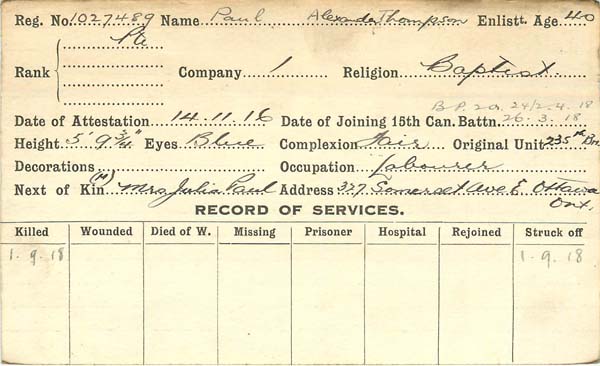 Reg. No. 1027489 Name Paul Alexander Thompson Enlistt. Age 40
Pte
Rank Company 1 Religion Baptist.
B.P. 2a. 24/2-4-18
Date of Attestation 14.11.16 Date of Joining 15th Can. Battn. 26.3.18
Height 5' 9 3/4" Eyes Blue Complexion Fair Original Unit 235th Bn
Decorations Occupation Labourer
Next of Kin (M) Mrs Julia Paul Address 327 Somerset Ave E Ottawa
Ont.
RECORD OF SERVICES.
Killed Wounded Died of W. Missing Prisoner Hospital Rejoined Struck off
1.9.18 1-9.18